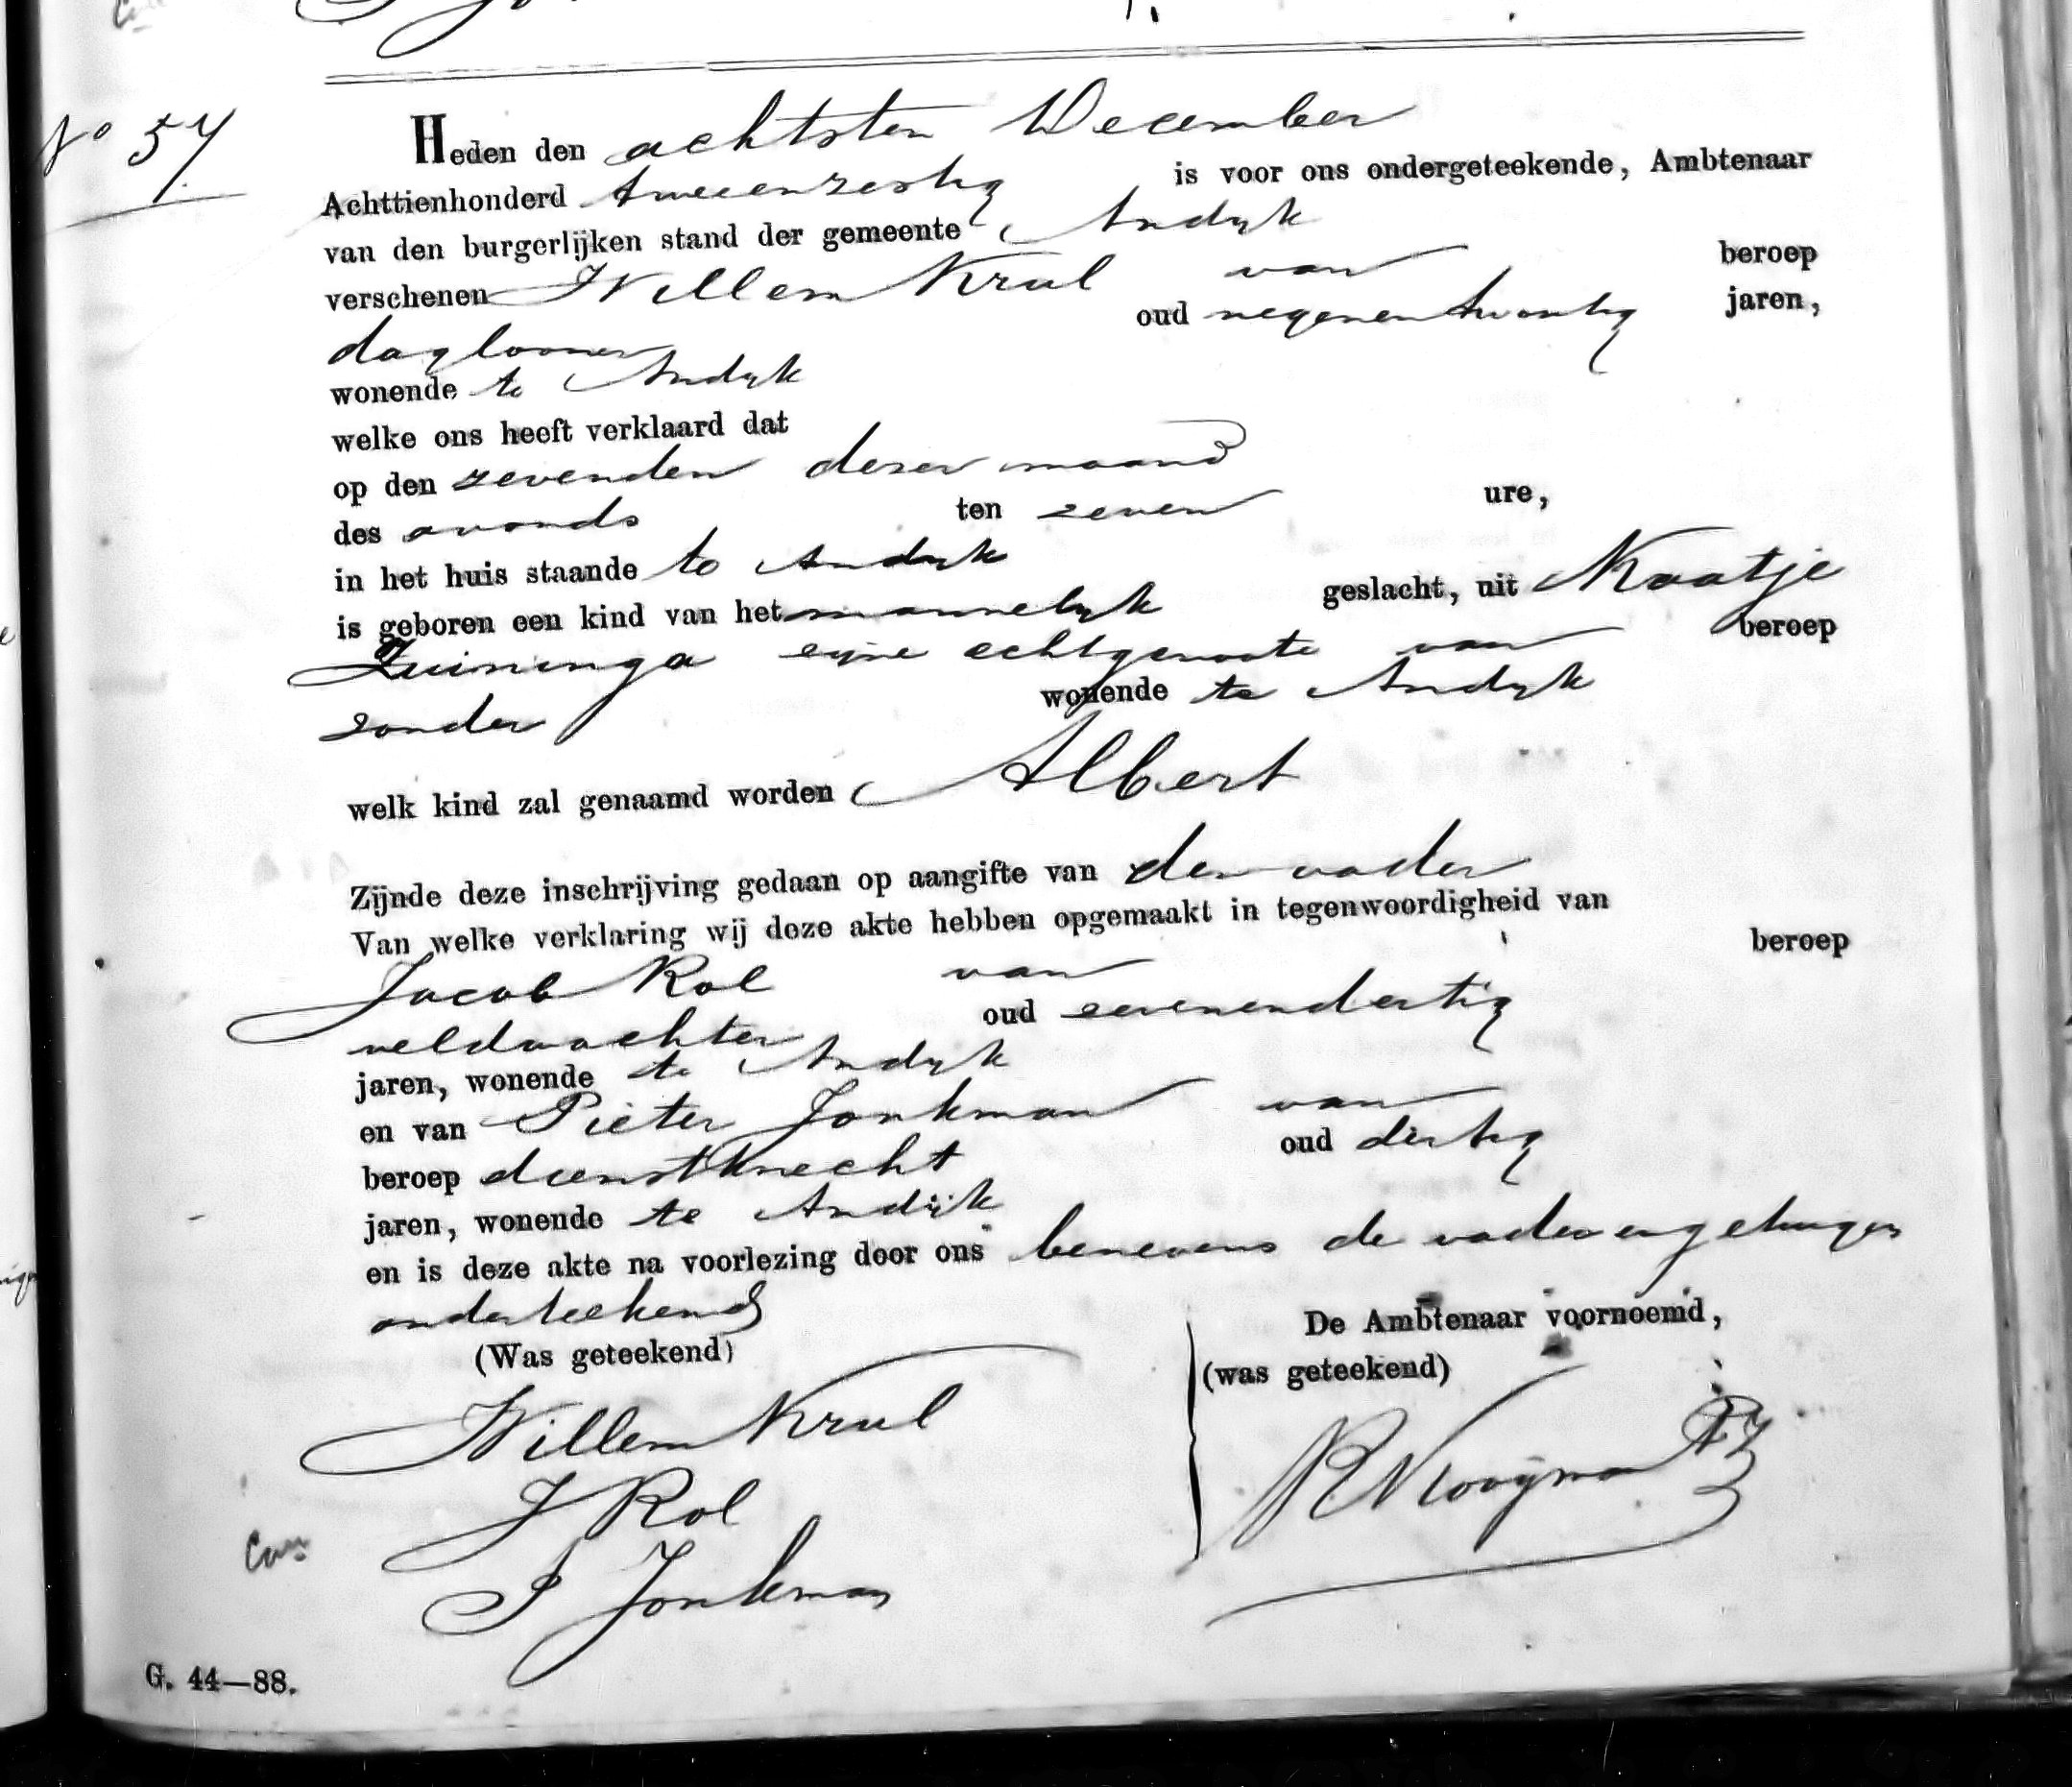 No 57
Heden den achtsten December
Achttienhonderd tweeenzestig is voor ons ondergeteekende, Ambtenaar
van den burgerlijken stand der gemeente Andyk
verschenen Willem Krul van beroep
daglooner oud negenentwintig jaren,
wonende te Andyk
welke ons heeft verklaard dat
op den zevenden dezer maand
des avonds ten zeven ure,
in het huis staande te Andyk
is geboren een kind van het mannelyk geslacht, uit Kaatje
Zuininga zyne echtgenoote van beroep
zonder wonende te Andyk
welk kind zal genaamd worden Albert
Zijnde deze inschrijving gedaan op aangifte van den vader
Van welke verklaring wij deze akte hebben opgemaakt in tegenwoordigheid van
Jacob Rol van beroep
veldwachter oud zevenendertig
jaren, wonende te Andyk
en van Pieter Jonkman van
beroep dienstknecht oud dertig
jaren, wonende te Andijk
en is deze akte na voorlezing door ons benevens de vader en getuigen
onderteekend
(Was geteekend)
De Ambtenaar voornoemd,
(was geteekend)
Willem Krul
J Rol
P Jonkman
Kooyman Pz
G. 44—88.